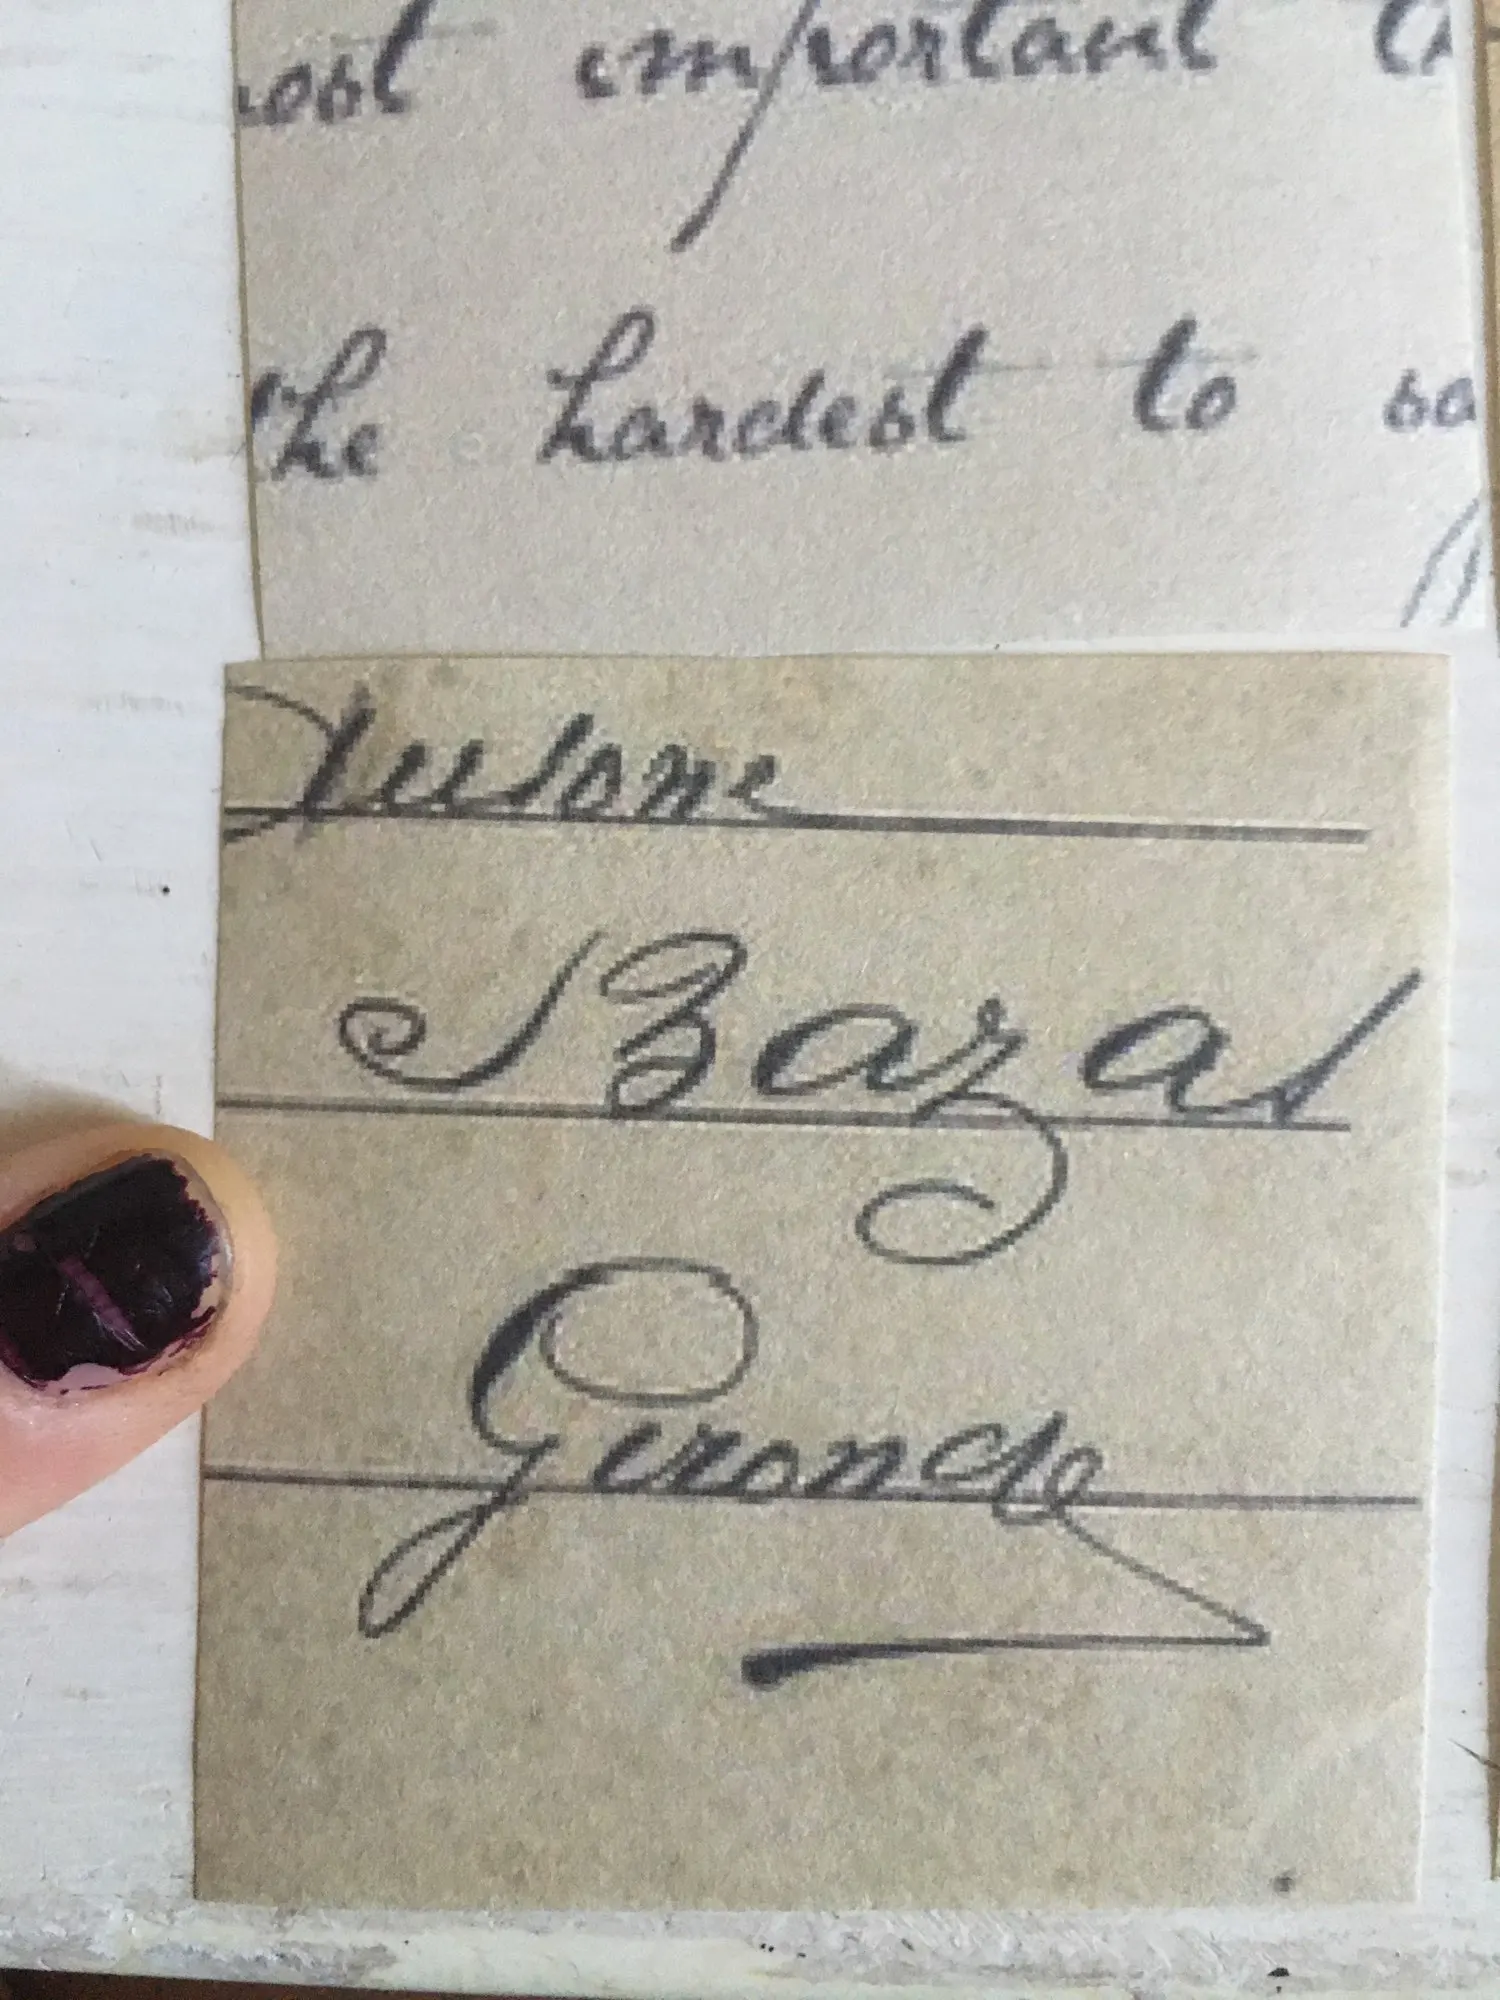 ost important
the hardest to sa
Bazas
Gironde